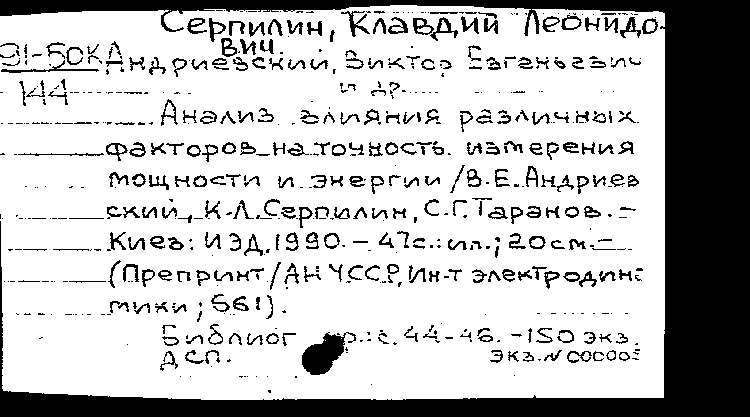 Серпилин, Клавдий Леонидо-
вич.
91-50К Андриевский, Виктор Евгеньевич
144 и др.
Анализ влияния различных
факторов на точность измерения
мощности и энергии / В.Е. Андриев
ский, К.Л. Серпилин, С.Г. Таранов. -
Киев: ИЭД, 1990. - 47с.: ил.; 20см. -
(Препринт / АН УССР, Ин-т электродина
мики; 661).
Библиог с. 44-46. - 150 экз.
ДСП. экз. N